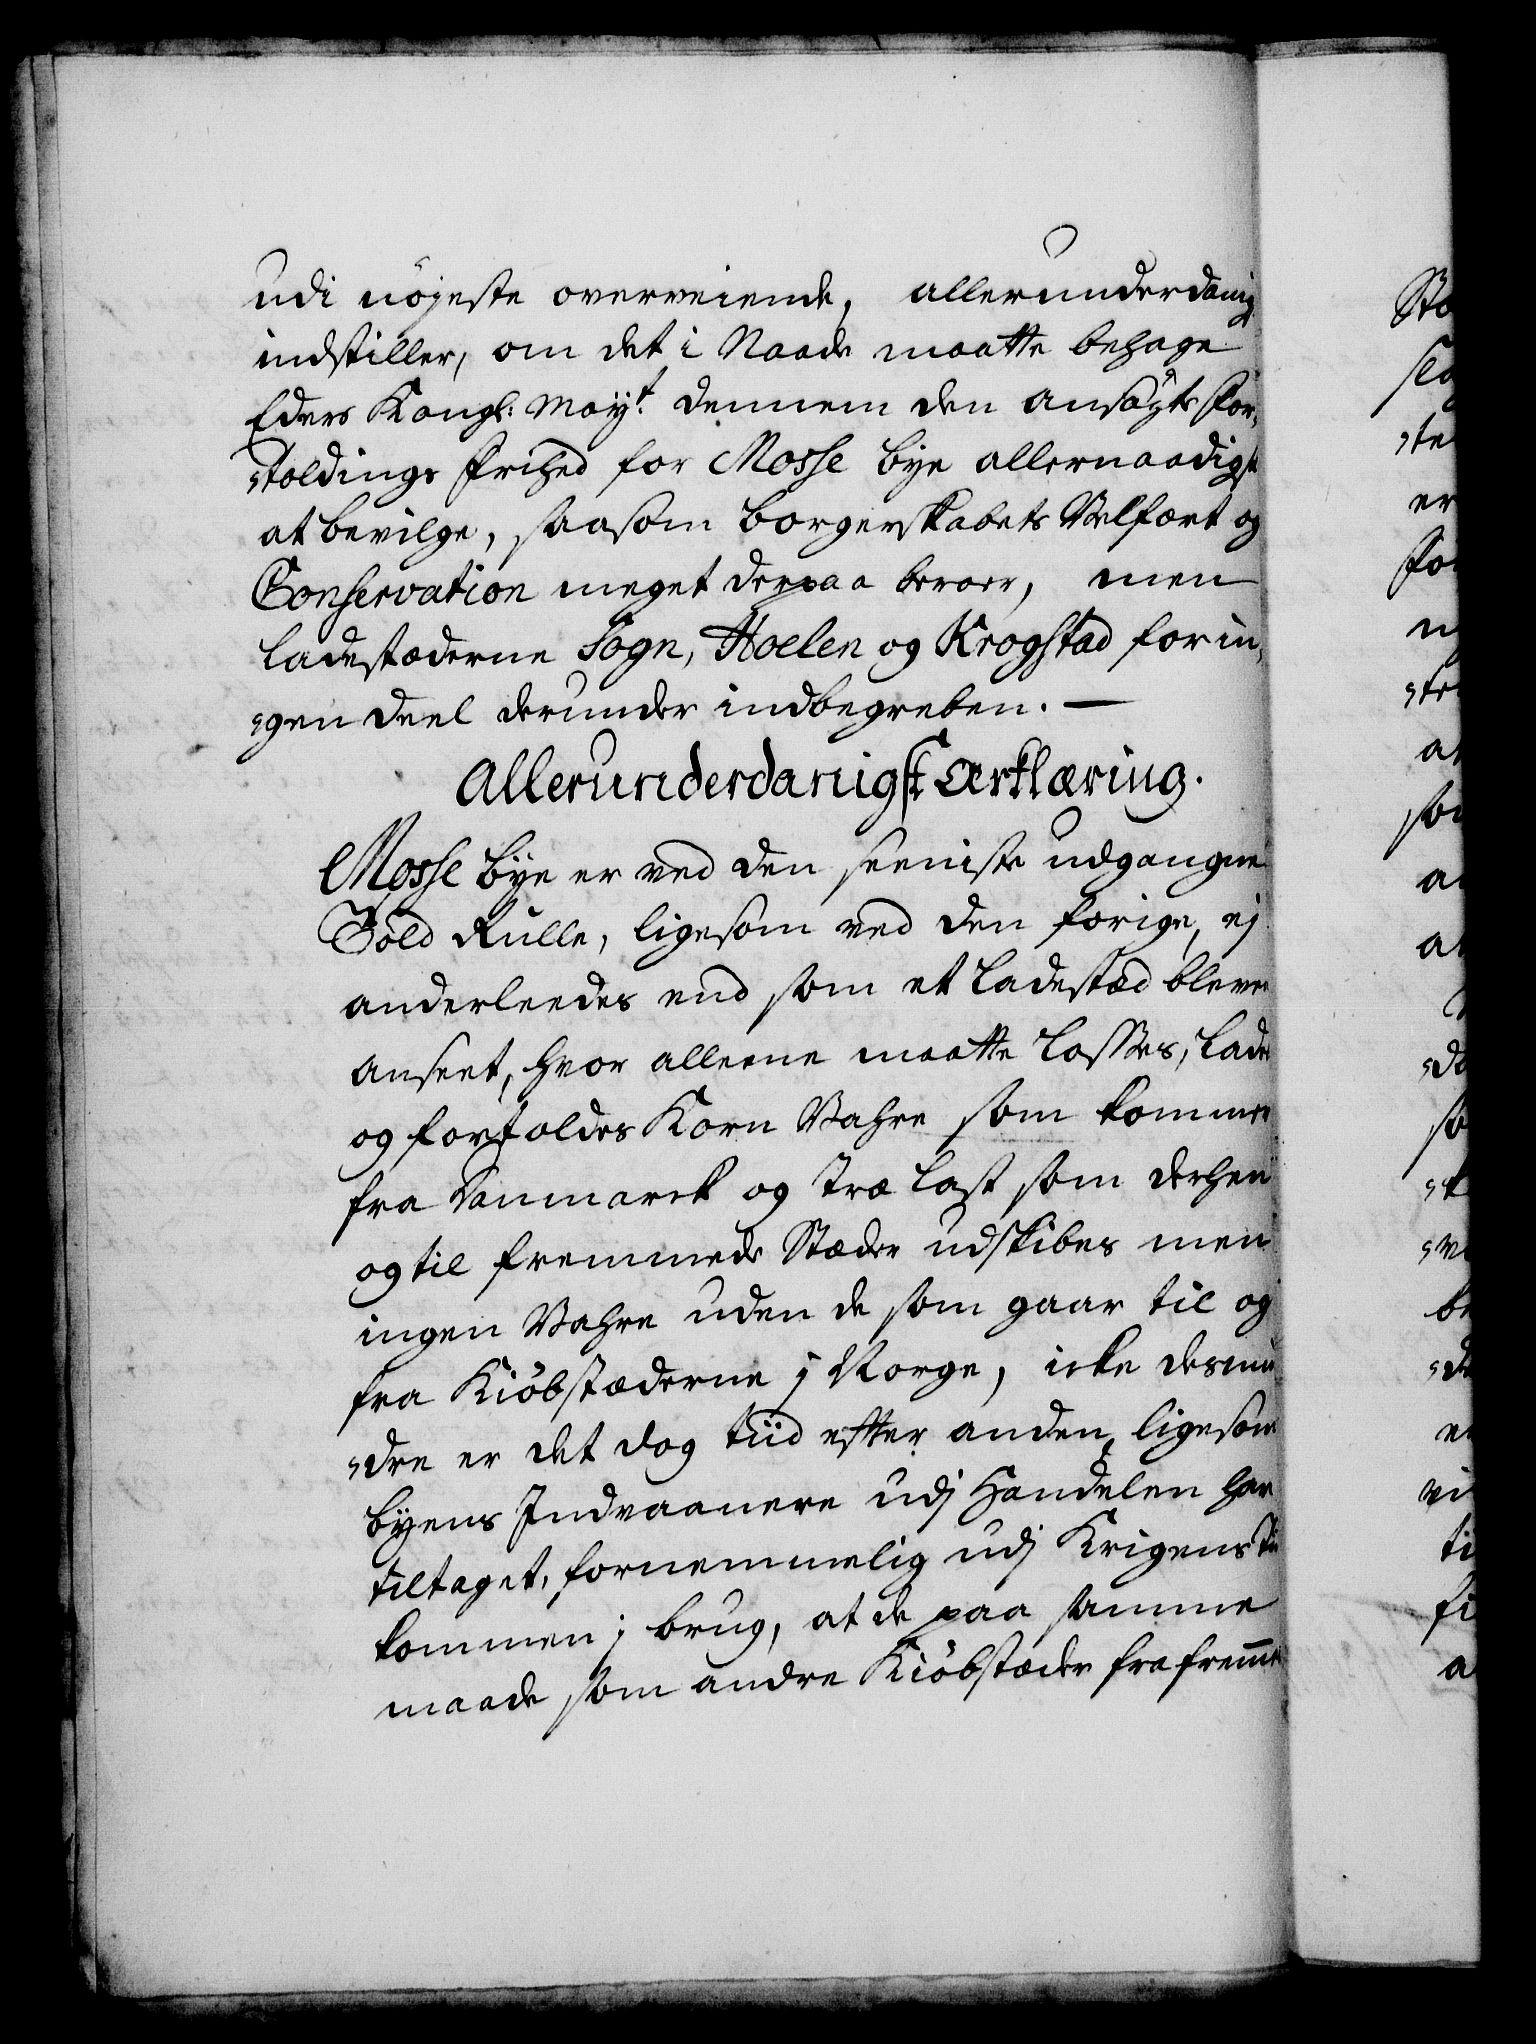 udi nöjeste overveiende, allerunderdanig
indstiller, om det i Naade maatte behage
Eders Kongl: Mayt. dennem den ansögte For,
,toldings Frihed for Mosse bye allernaadigst
at bevilge, saasom borgerskabets Velfært og
Conservation meget derpaa beroer, men
ladestæderne Sogn, Hoelen og Krogstad for in,
,gen deel derunder indbegreben. —
Allerunderdanigst Ærklæring.
Mosse bye er ved den seeniste udgangne
Told Rulle, ligesom ved den forige, ej
anderleedes end som et ladestæd bleven
anseet, hvor alleene maatte losses, lades
og fortoldes Korn Vahre som kommer
fra Danmarck og Træ last som derhen
og til fremmede Stæder udskibes men
ingen Vahre uden de som gaar til og
fra Kiöbstæderne j Norge, icke desmin
,dre er det dog tiid efter anden, ligesom
byens Indvaanere udj Handelen har
tiltaget, fornemmelig udj Krigens Tid
kommen j brug, at de paa samme
maade som andre Kiöbstæder fra fremme